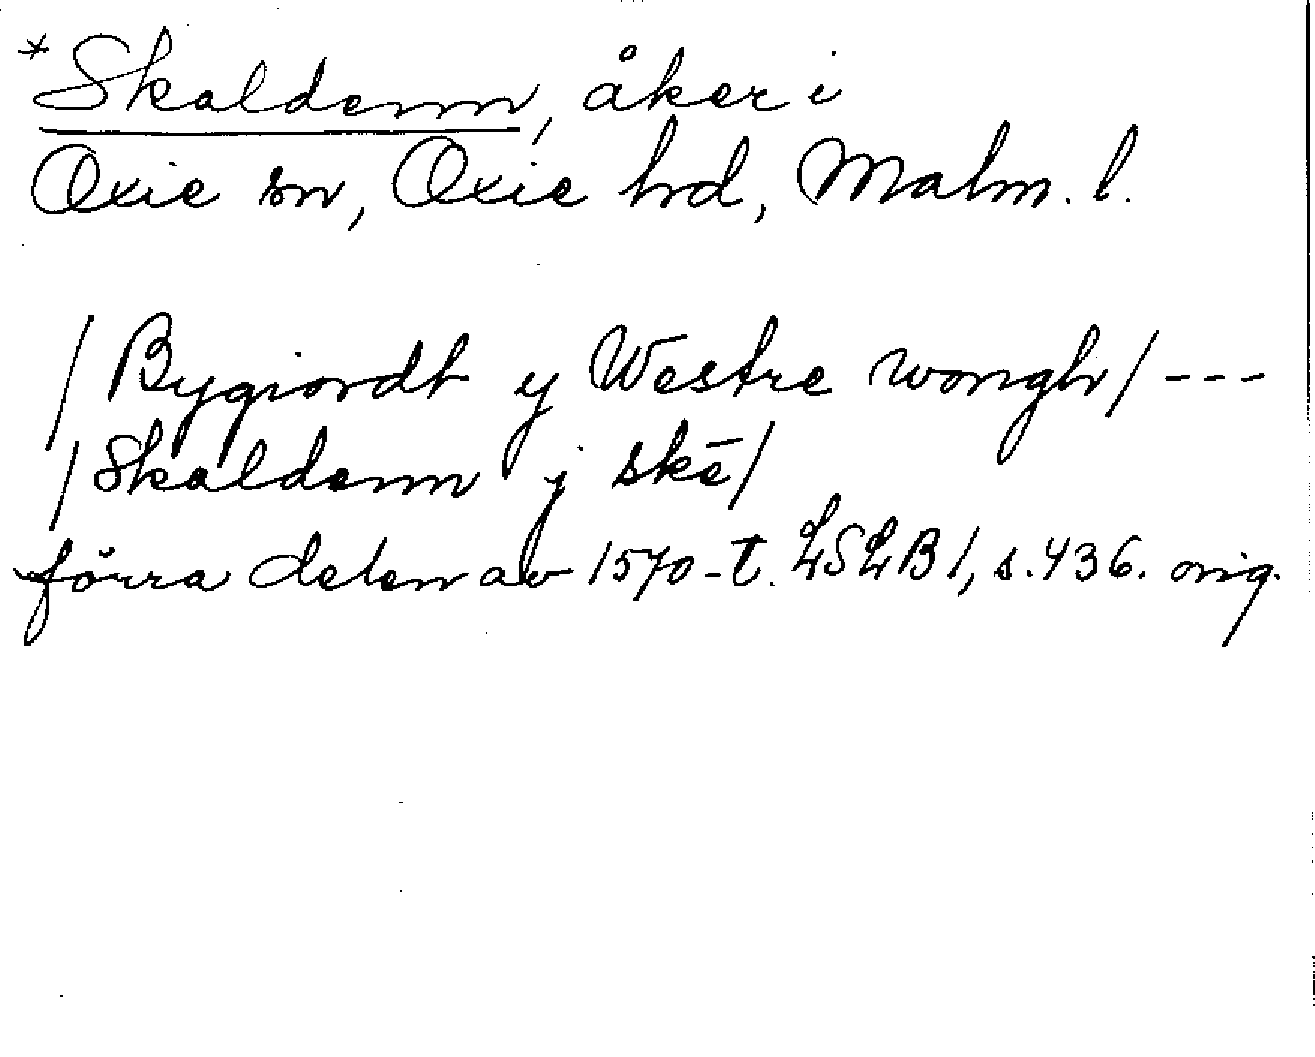 *Skaldenn, åker i
Oxie sn, Oxie hd, Malm. l.
/ Bygiordt y Westre wongh / ---
/ Skaldenn j skē /
förra delen av 1570-t. LSLB 1, s. 436. orig.